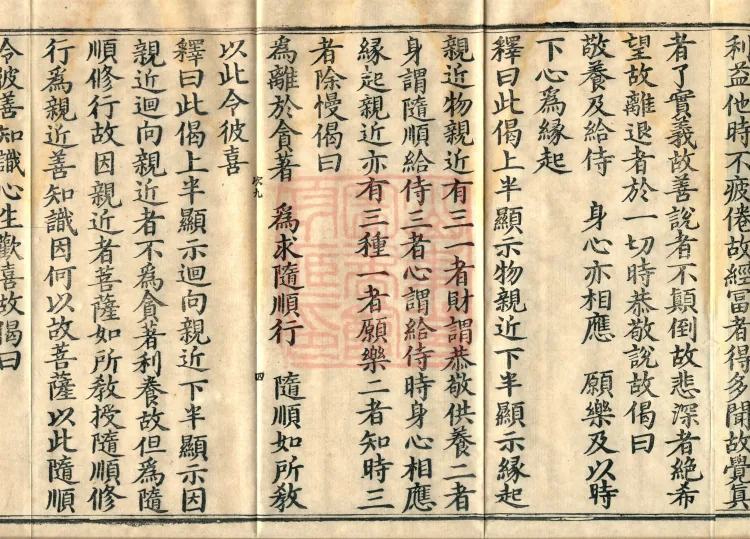 利益他時不疲倦故經富者得多聞故覺真
者了實義故善說者不顛倒故悲深者絶希
望故離退者於一切時恭敬說故偈曰
敬養及給侍　身心亦相應　願樂及以時
下心爲緣起
釋曰此偈上半顯示物親近下半顯示緣起
親近物親近有三一者財謂恭敬供養二者
身謂隨順給侍三者心謂給侍時身心相應
緣起親近亦有三種一者願樂二者知時三
者除慢偈曰
爲離於貪著　爲求隨順行　隨順如所教
九　四
以此令彼喜
釋曰此偈上半顯示迴向親近下半顯示因
親近迴向親近者不爲貪著利養故但爲隨
順修行故因親近者菩薩如所教授隨順修
行爲親近善知識因何以故菩薩以此隨順
令彼善知識心生歡喜故偈曰